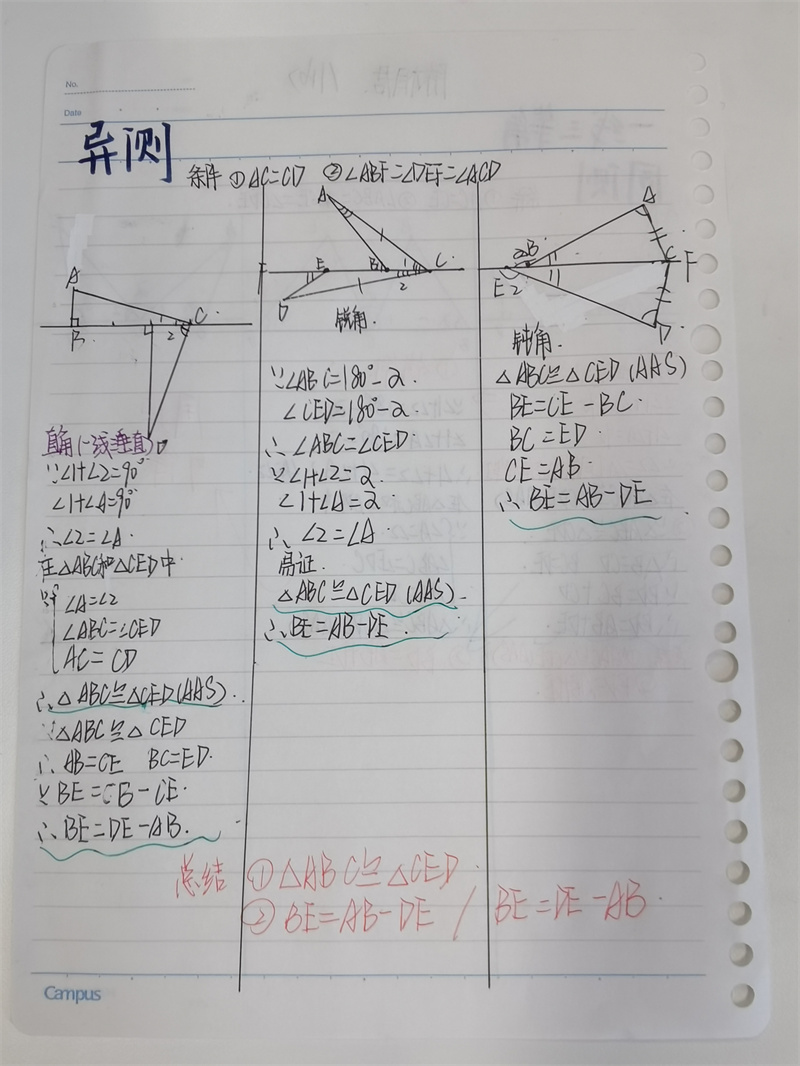 No.
Date
异测
条件 ①AC=CD ②∠ABF=∠DEF=∠ACD
A
B
C
1
2
D
直角(一线三垂直)
∵∠1+∠2=90°
∠1+∠A=90°
∴∠2=∠A.
在△ABC和△CED中
∠A=∠2
∠ABC=∠CED
AC=CD
∴△ABC≌△CED(AAS).
∵△ABC≌△CED
∴AB=CE BC=ED.
又BE=CB-CE.
∴BE=DE-AB.
A
F
E
B
C
1
2
D
钝角.
∵∠ABC=180°-2.
∠CED=180°-2.
∴∠ABC=∠CED.
又∠1+∠2=2.
∠1+∠A=2
∴∠2=∠A
易证.
△ABC≌△CED(AAS).
∴BE=AB-DE.
A
B
C
F
E
2
D
钝角.
△ABC≌△CED(AAS)
BE=CE-BC.
BC=ED.
CE=AB.
∴BE=AB-DE
总结 ①△ABC≌△CED.
②BE=AB-DE / BE=DE-AB.
Campus